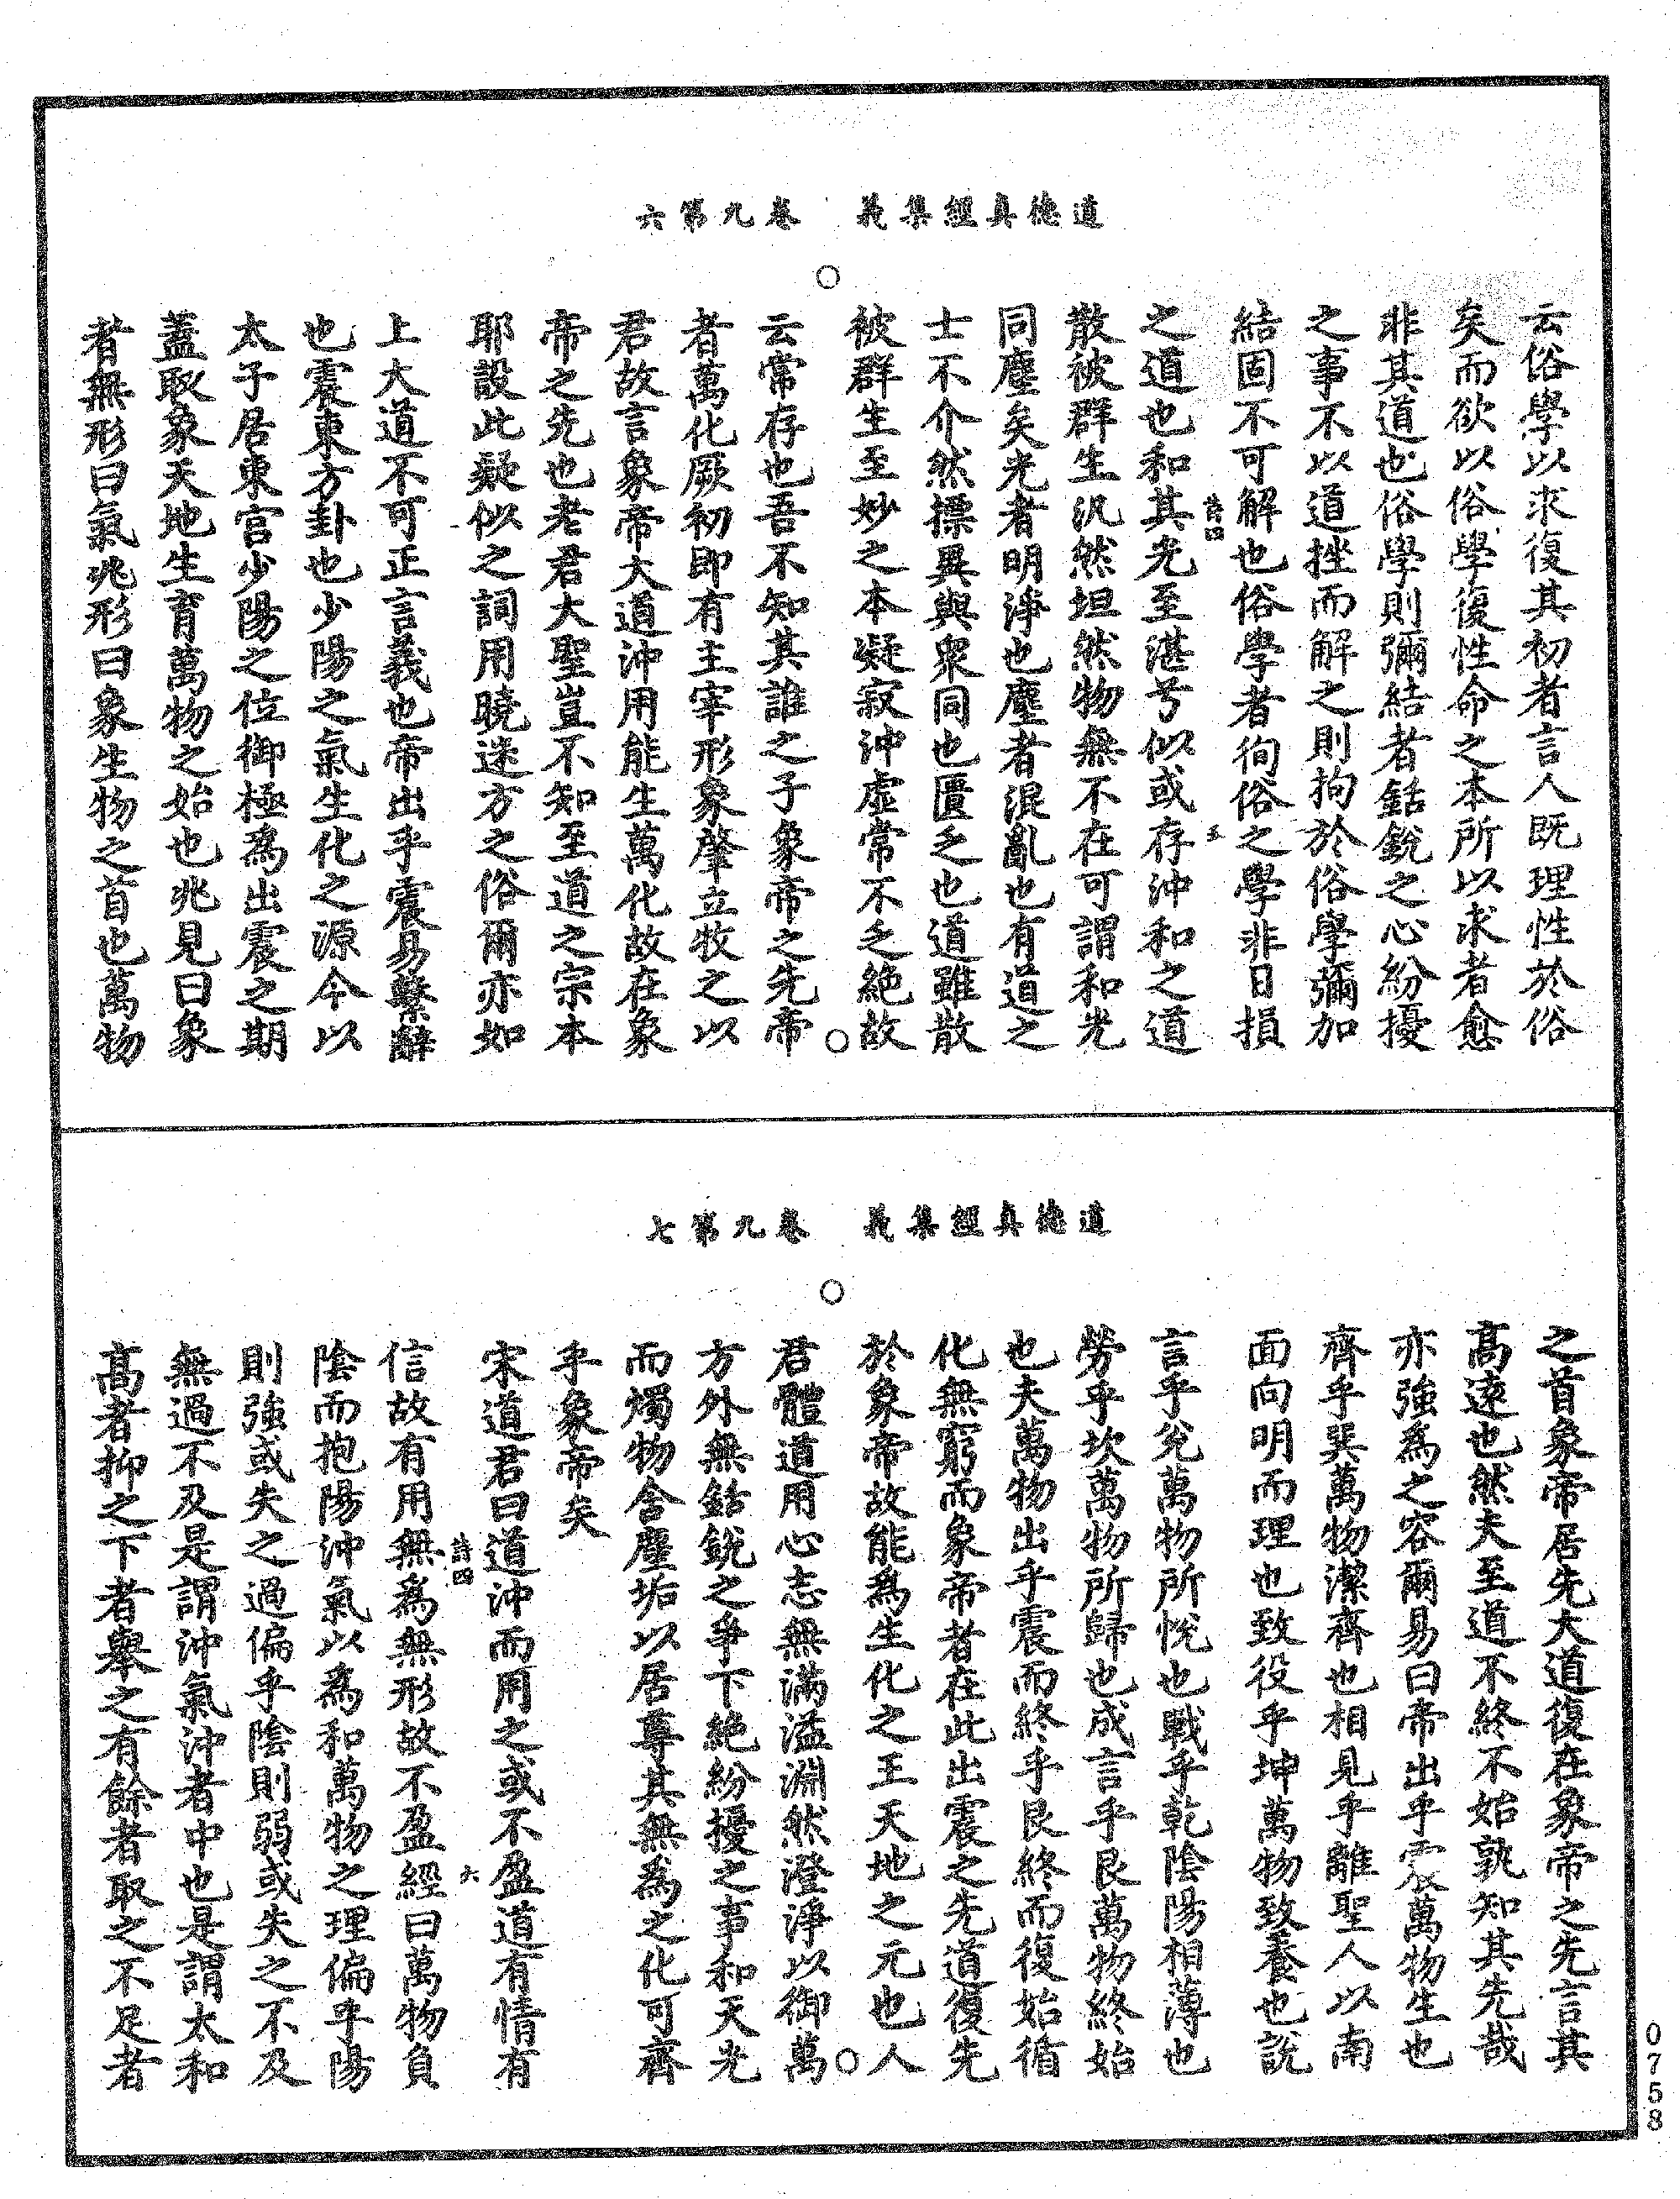 道德真經集義　卷九第六
云俗學以求復其初者言人既理性於俗
矣而欲以俗學復性命之本所以求者愈
非其道也俗學則彌結者銛銳之心紛擾
之事不以道挫而解之則拘於俗學彌加
結固不可解也俗學者徇俗之學非日損
詩四　五
之道也和其光至湛兮似或存沖和之道
散被群生汎然坦然物無不在可謂和光
同塵矣光者明淨也塵者混亂也有道之
士不介然摽異與衆同也匱乏也道雖散
被群生至妙之本凝寂沖虛常不乏絕故
云常存也吾不知其誰之子象帝之先帝
者萬化厥初即有主宰形象肇立牧之以
君故言象帝大道沖用能生萬化故在象
帝之先也老君大聖豈不知至道之宗本
耶設此疑似之詞用曉迷方之俗爾亦如
上大道不可正言義也帝出乎震易繫辭
也震東方卦也少陽之氣生化之源今以
太子居東宮少陽之位御極為出震之期
蓋取象天地生育萬物之始也兆見曰象
者無形曰氣兆形曰象生物之首也萬物
道德真經集義　卷九第七
之首象帝居先大道復在象帝之先言其
高遠也然夫至道不終不始孰知其先哉
亦強為之容爾易曰帝出乎震萬物生也
齊乎巽萬物潔齊也相見乎離聖人以南
面向明而理也致役乎坤萬物致養也說
言乎兌萬物所悅也戰乎乾陰陽相薄也
勞乎坎萬物所歸也成言乎艮萬物終始
也夫萬物出乎震而終乎艮終而復始循
化無窮而象帝者在此出震之先道復先
於象帝故能為生化之王天地之元也人
君體道用心志無滿溢淵然澄淨以御萬
方外無銛銳之爭下絕紛擾之事和天光
而燭物舍塵垢以居尊其無為之化可齊
乎象帝矣
宋道君曰道沖而用之或不盈道有情有
詩四　六
信故有用無為無形故不盈經曰萬物負
陰而抱陽沖氣以為和萬物之理偏乎陽
則強或失之過偏乎陰則弱或失之不及
無過不及是謂沖氣沖者中也是謂太和
高者抑之下者舉之有餘者取之不足者
0758